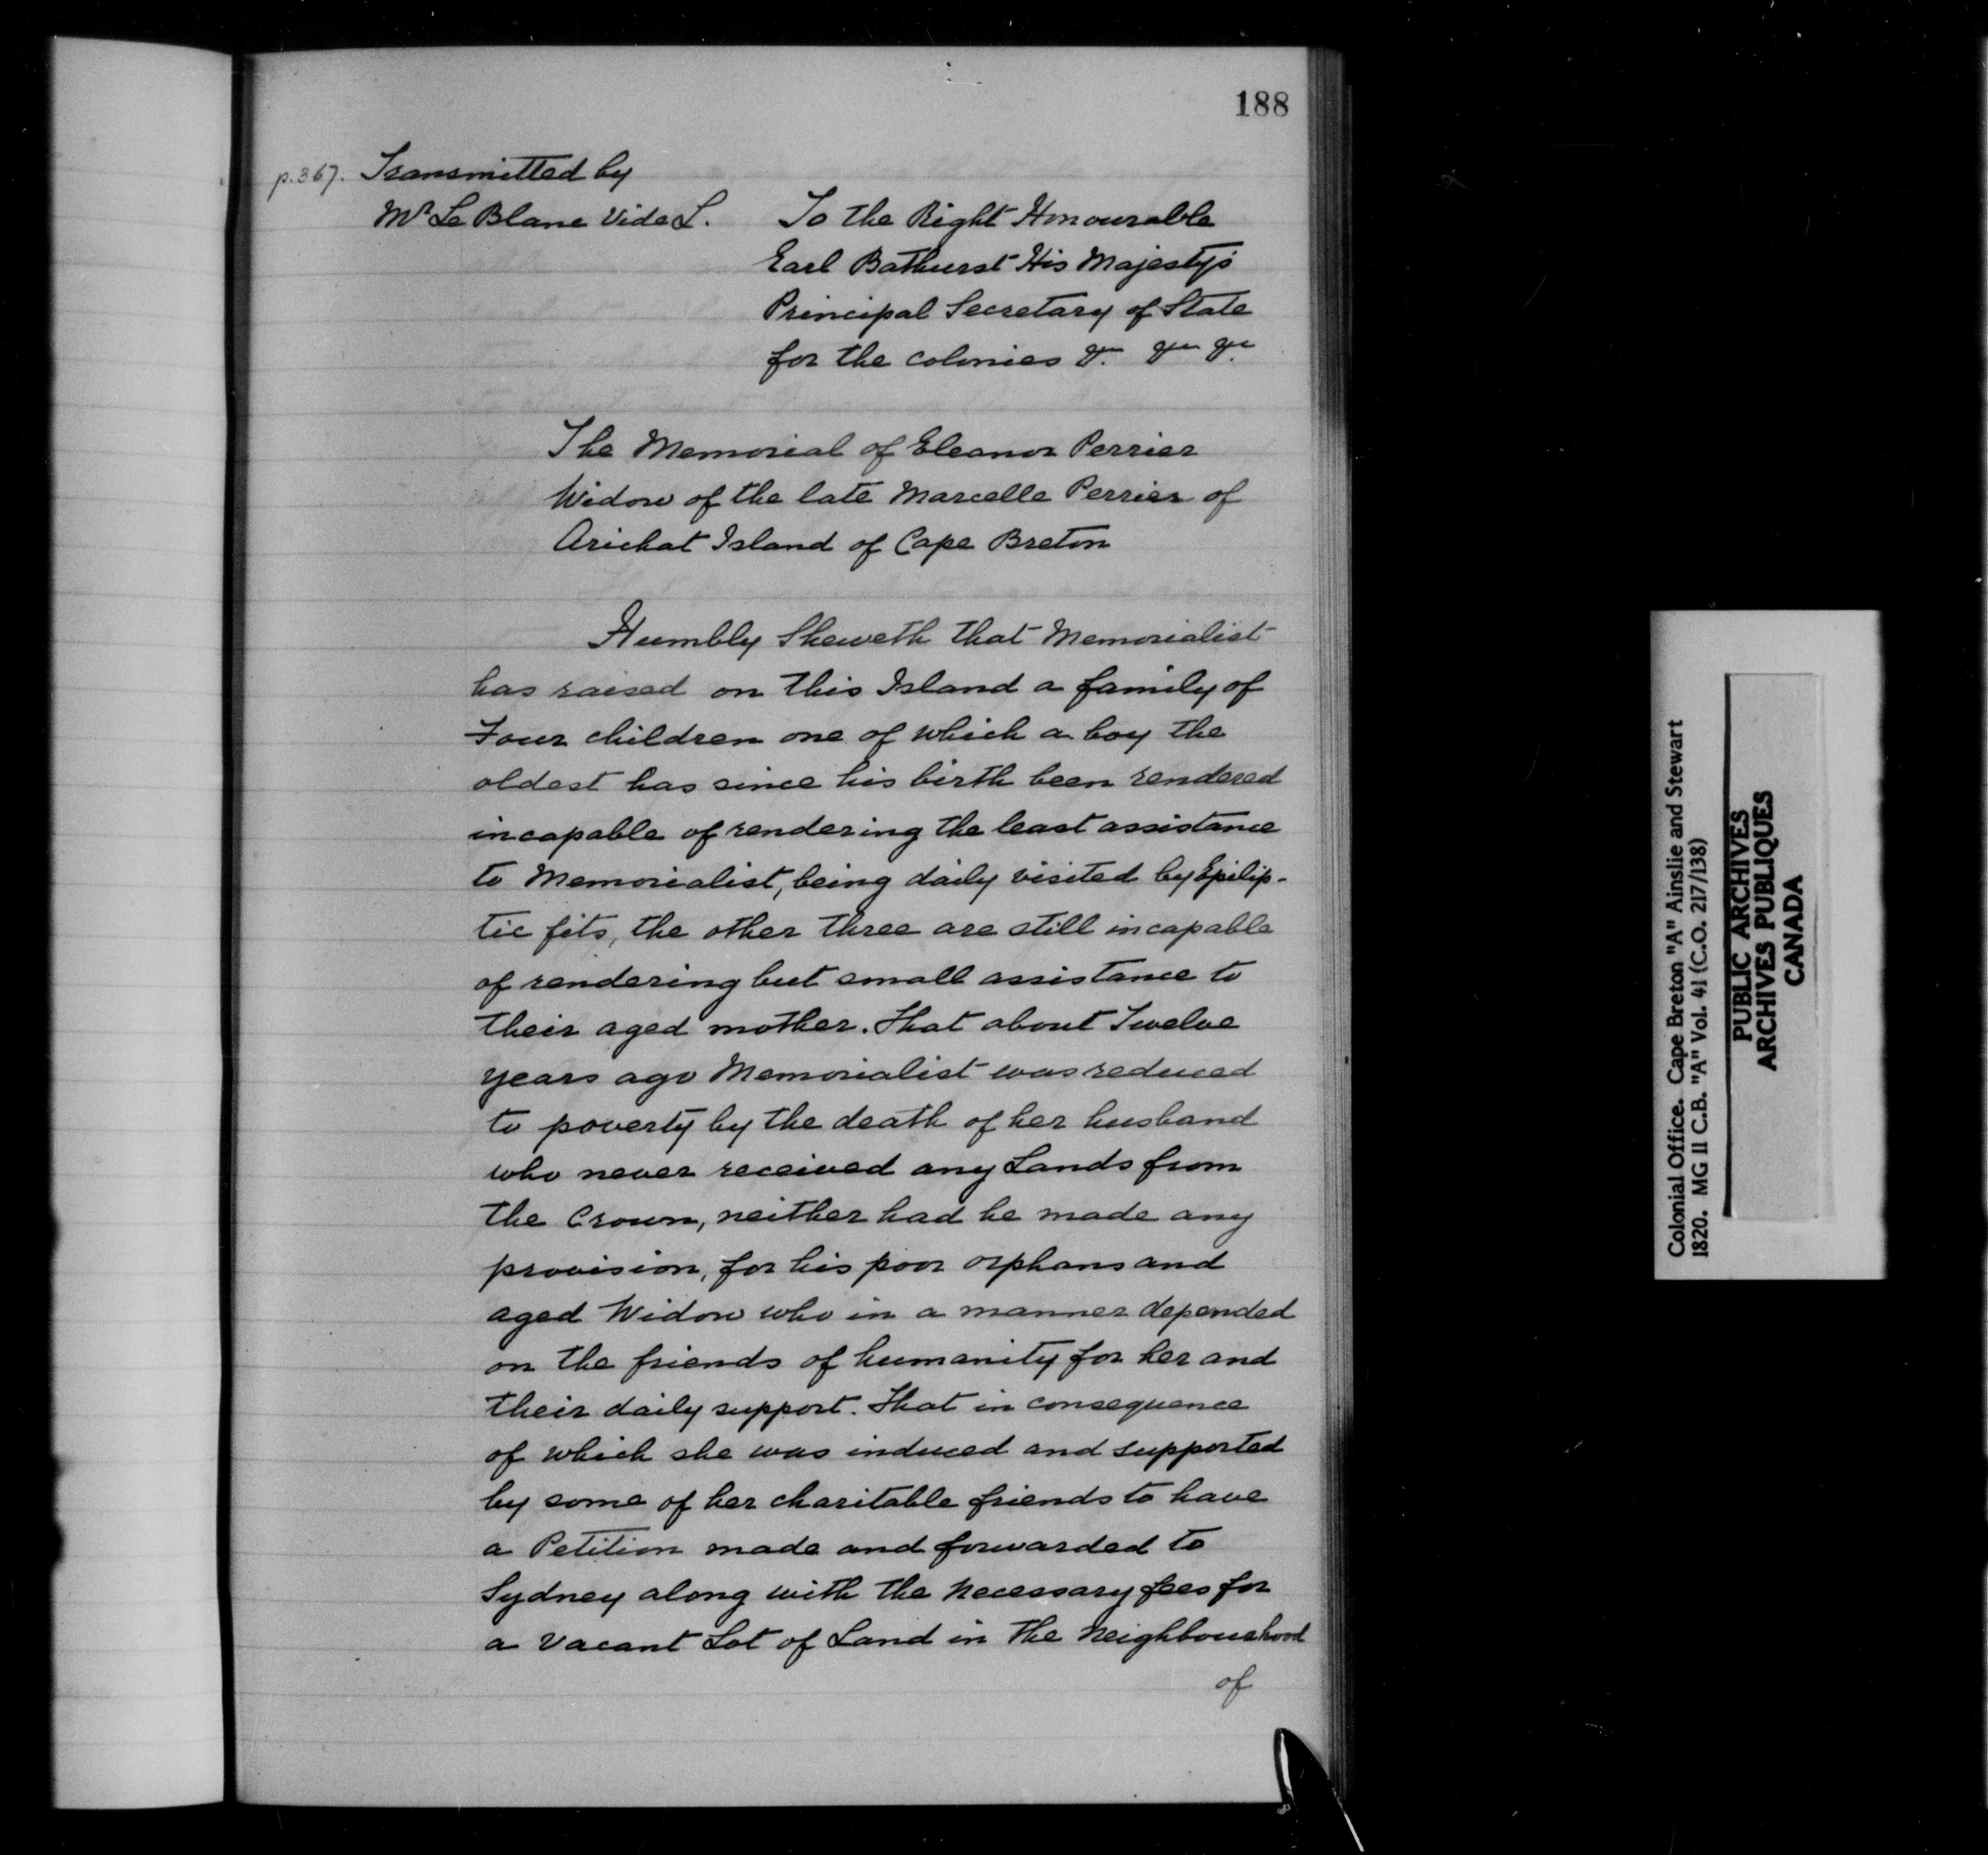 188
p.367. Transmitted by
Mr Le Blanc Vide L.
To the Right Honourable
Earl Bathurst His Majesty's
Principal Secretary of State
for the colonies &c &c &c
The Memorial of Eleanor Perrier
Widow of the late Marcelle Perrier of
Arichat Island of Cape Breton
Humbly Sheweth that Memorialist
has raised on this Island a family of
Four children one of which a boy the
oldest has since his birth been rendered
incapable of rendering the least assistance
to Memorialist, being daily visited by Epilip-
tic fits, the other three are still incapable
of rendering but small assistance to
their aged mother. That about Twelve
years ago Memorialist was reduced
to poverty by the death of her husband
who never received any Lands from
the Crown, neither had he made any
provision, for his poor orphans and
aged Widow who in a manner depended
on the friends of humanity for her and
their daily support. That in consequence
of which she was induced and supported
by some of her charitable friends to have
a Petition made and forwarded to
Sydney along with the necessary fees for
a vacant Lot of Land in the neighbourhood
of
Colonial Office. Cape Breton "A" Ainslie and Stewart
1820. MG 11 C.B. "A" Vol. 41 (C.O. 217/138)
PUBLIC ARCHIVES
ARCHIVES PUBLIQUES
CANADA